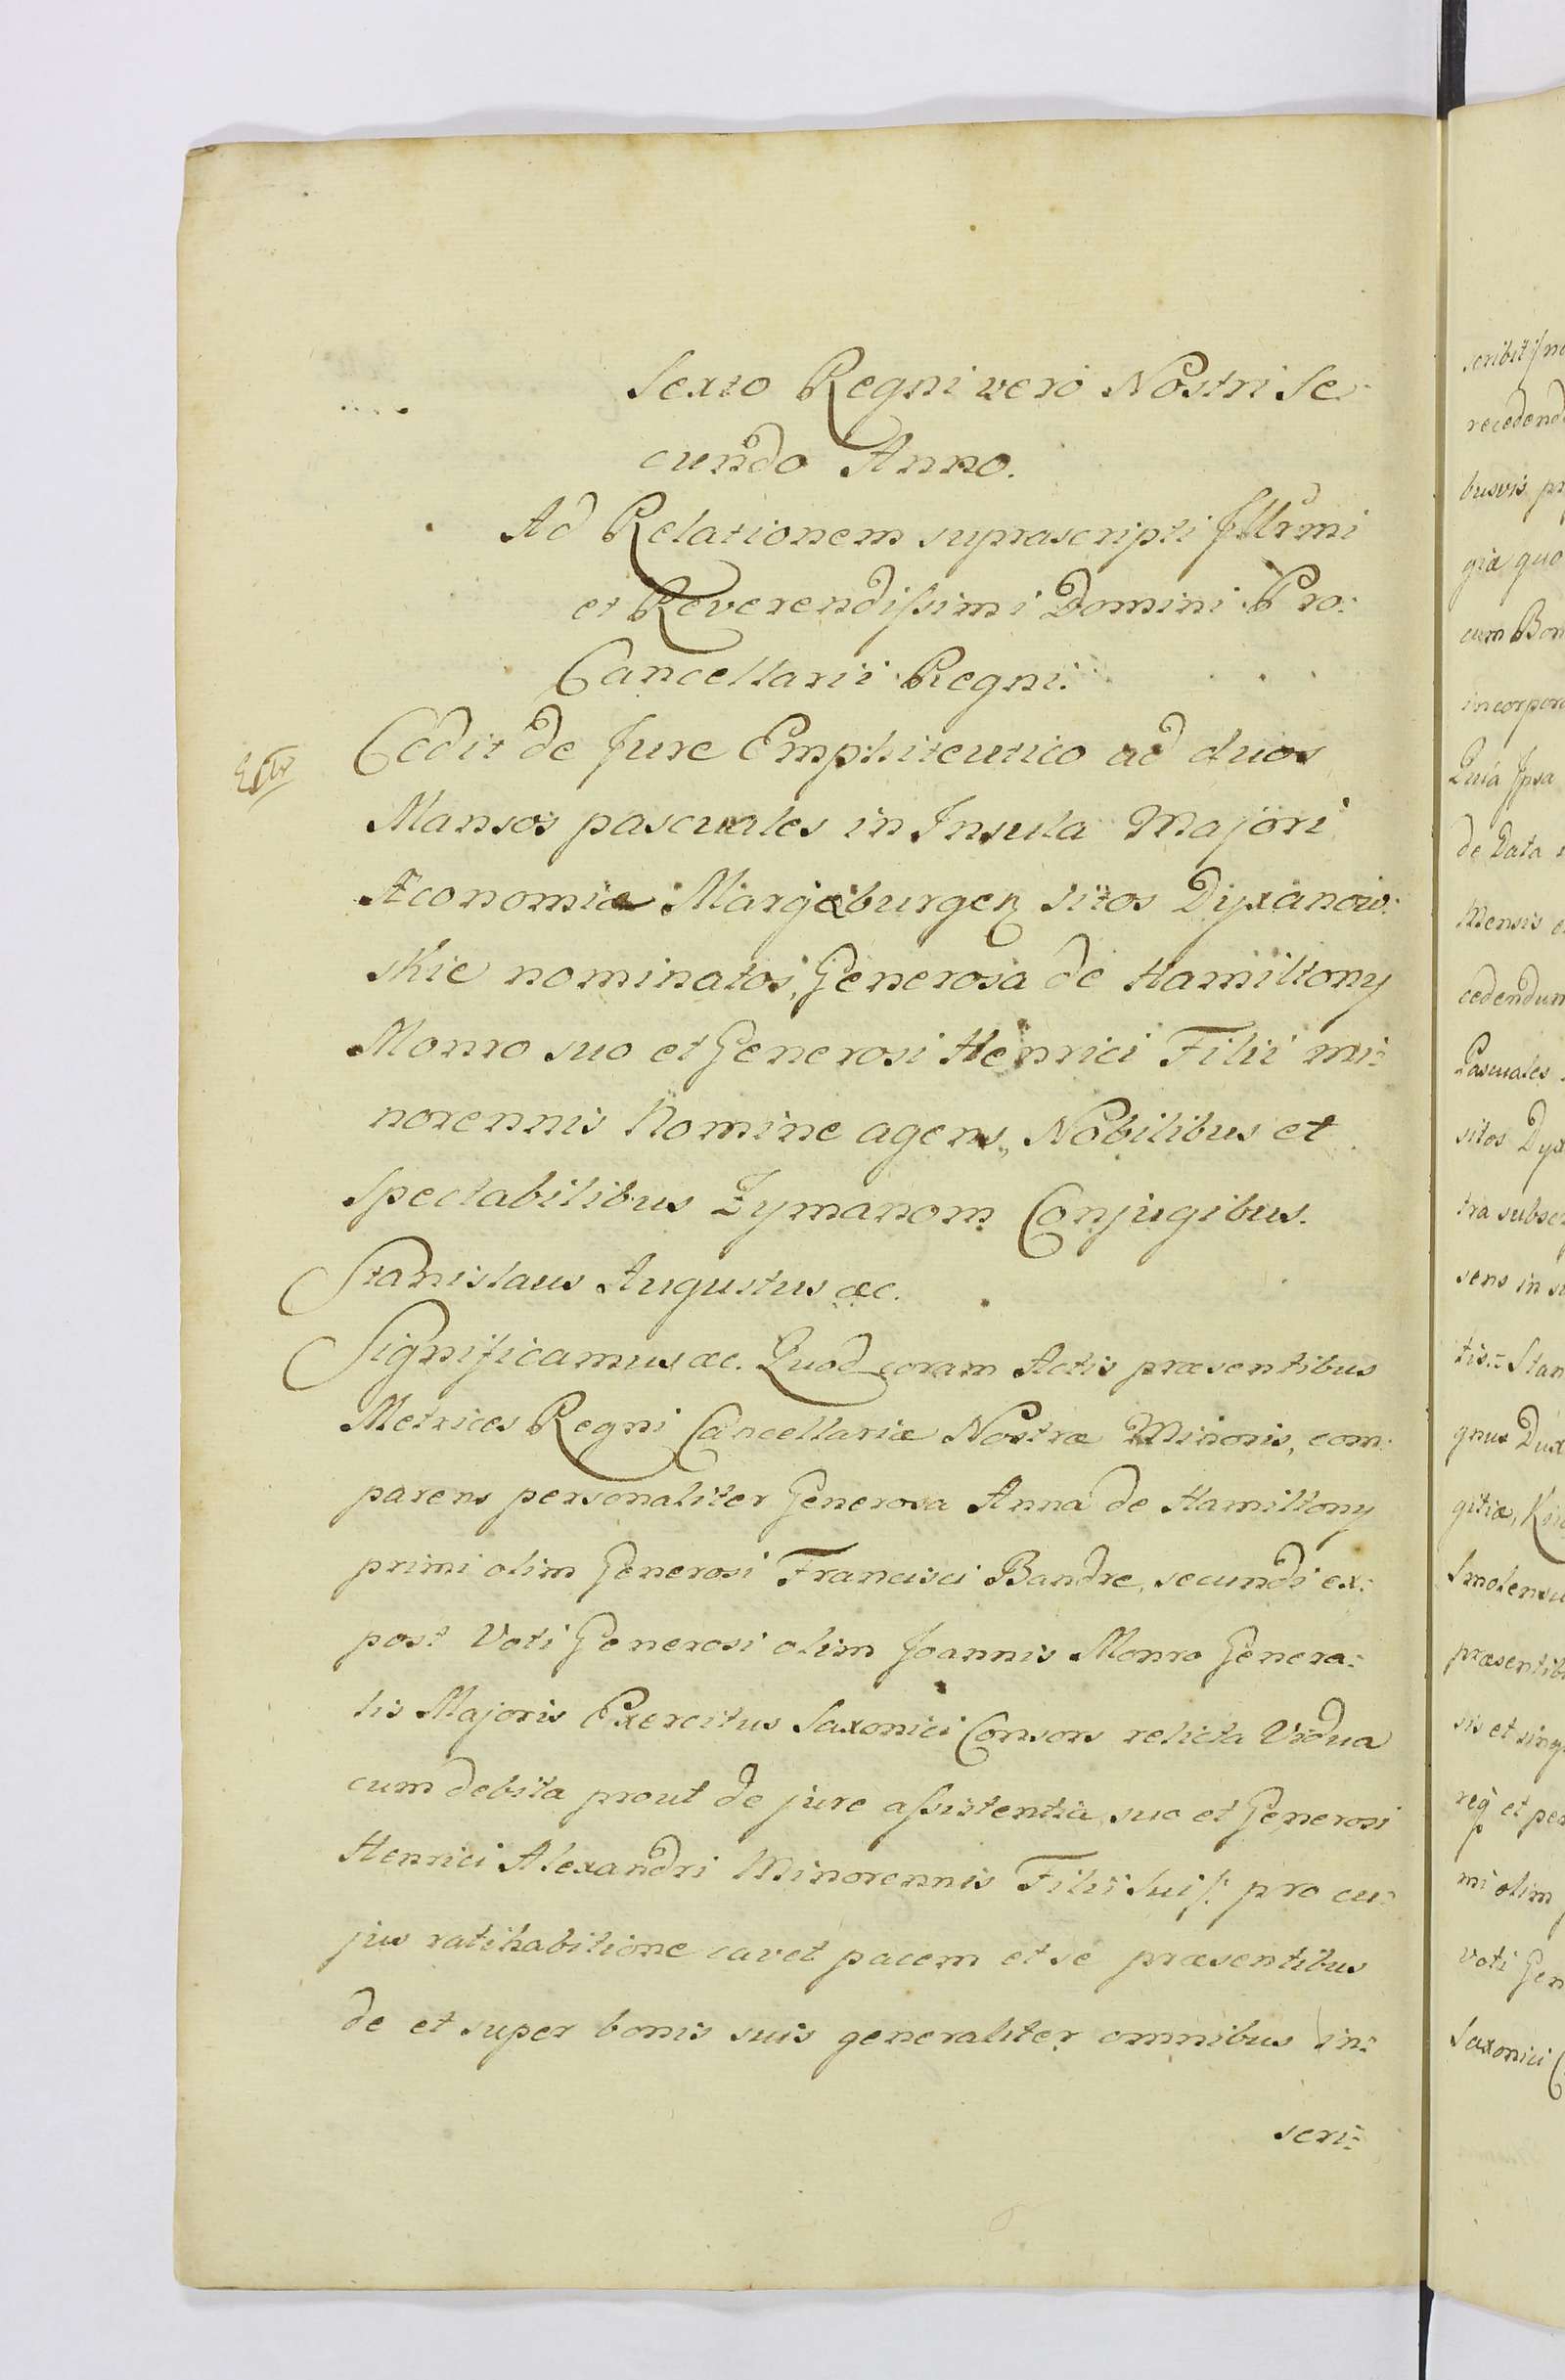 Sexto Regni vero Nostri Se-
cundo Anno.
Ad Relationem suprascripti Illrmi
et Reverendissimi Domini Pro-
Cancellarii Regni.
Cedit de Jure Emphiteutico ad duos
Mansos pascuales in Insula Majori
Æconomiæ Marjæburgen sitos Dyxanow-
skie nominatos, Generosa de Hamiltony
Monro suo et Generosi Henrici Filii mi-
norennis Nomine agens, Nobilibus et
Spectabilibus Zymanom Conjugibus.
Stanislaus Augustus æc.
Significamus æc. Quod coram Actis præsentibus
Metrices Regni Cancellariæ Nostræ Minoris, com-
parens personaliter Generosa Anna de Hamiltony
primi olim Generosi Francisci Bandre, secundi ex-
post Voti Generosi olim Joannis Monro Genera-
lis Majoris Exercitus Saxonici Consors relicta Vidua
cum debita prout de jure assistentia suo et Generosi
Henrici Alexandri Minorennis Filii Sui /: pro cu-
jus ratihabitione cavet pacem et se præsentibus
de et super bonis suis generaliter omnibus in-
scri-
scribit
recedend
busvis pr
gia quo
cum Bon
incorpora
Quia Ipsa
de Data
Mensis
cedendum
Pascuales
sitos Dyx
tra subscr
sens in su
tis. Stan
gnus Dux
gitiæ, Kio
Smolensc
præsentib
sis et sing
req et per
mi olim
Voti Gen
Saxonici C